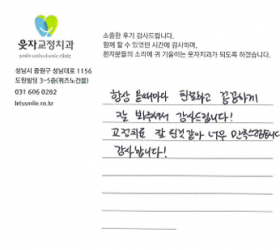 소중한 후기 감사드립니다.
함께 할 수 있었던 시간에 감사하며,
환자분들의 소리에 귀 기울이는 웃자치과가 되도록 하겠습니다.
웃자교정치과
smile orthodontic clinic
성남시 중원구 성남대로 1156
도원빌딩 3~5층(위즈노건물)
031 606 0282
letssmile.co.kr
항상 올때마다 친절하고 꼼꼼하게
잘 봐주셔서 감사드립니다!
교정치료 잘 된것같아 너무 만족스럽습니다
감사합니다!